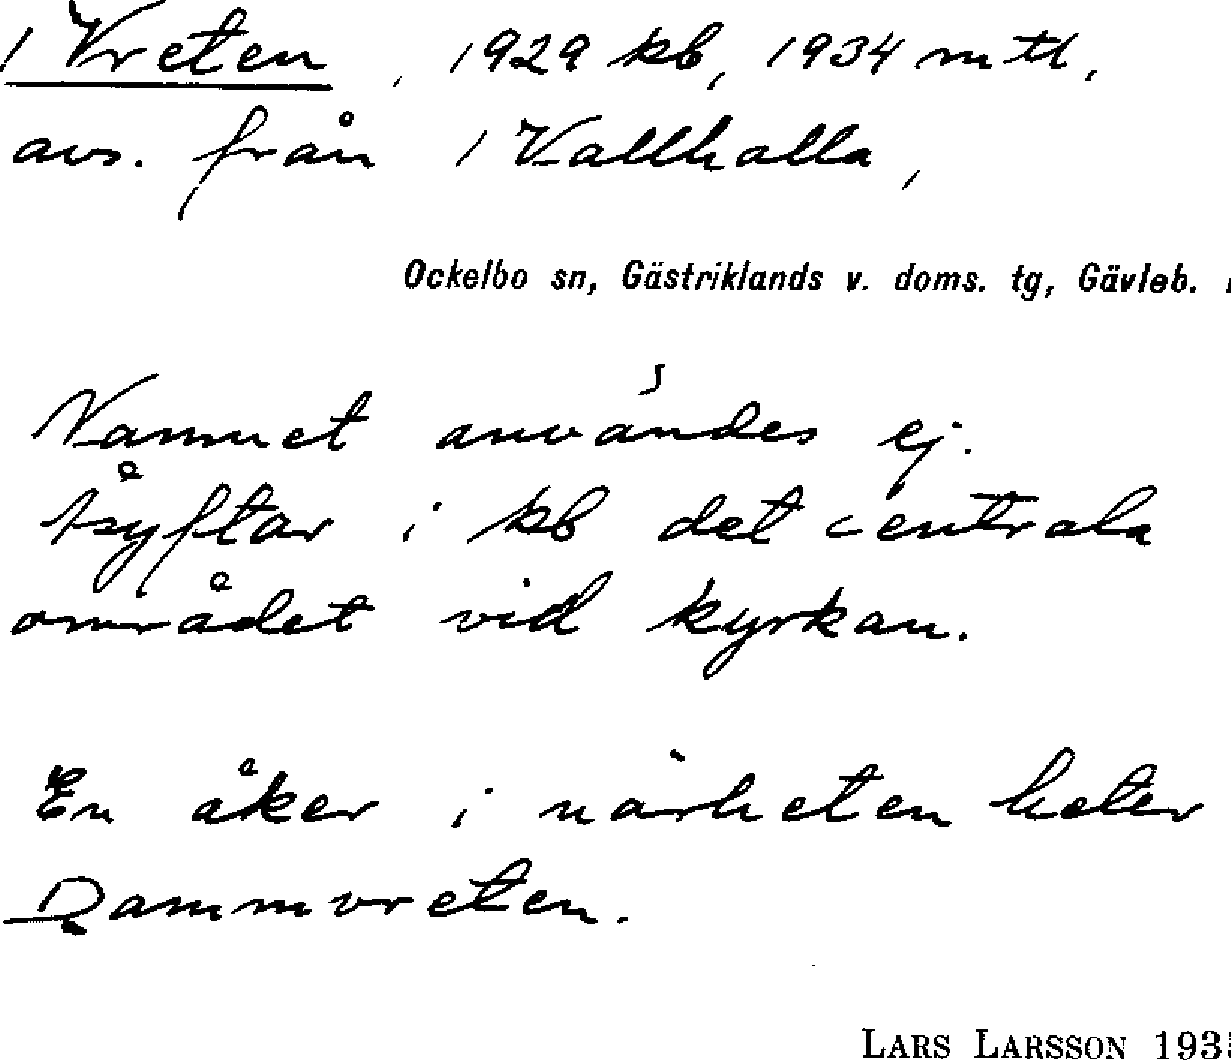 / Vreten, 1929 kb, 1934 mtl,
avs. från / Vallhalla,
Ockelbo sn, Gästriklands v. doms. tg, Gävleb.
Namnet användes ej.
Åsyftar i kb det centrala
området vid kyrkan.
En åker i närheten heter
Dammvreten.
LARS LARSSON 193